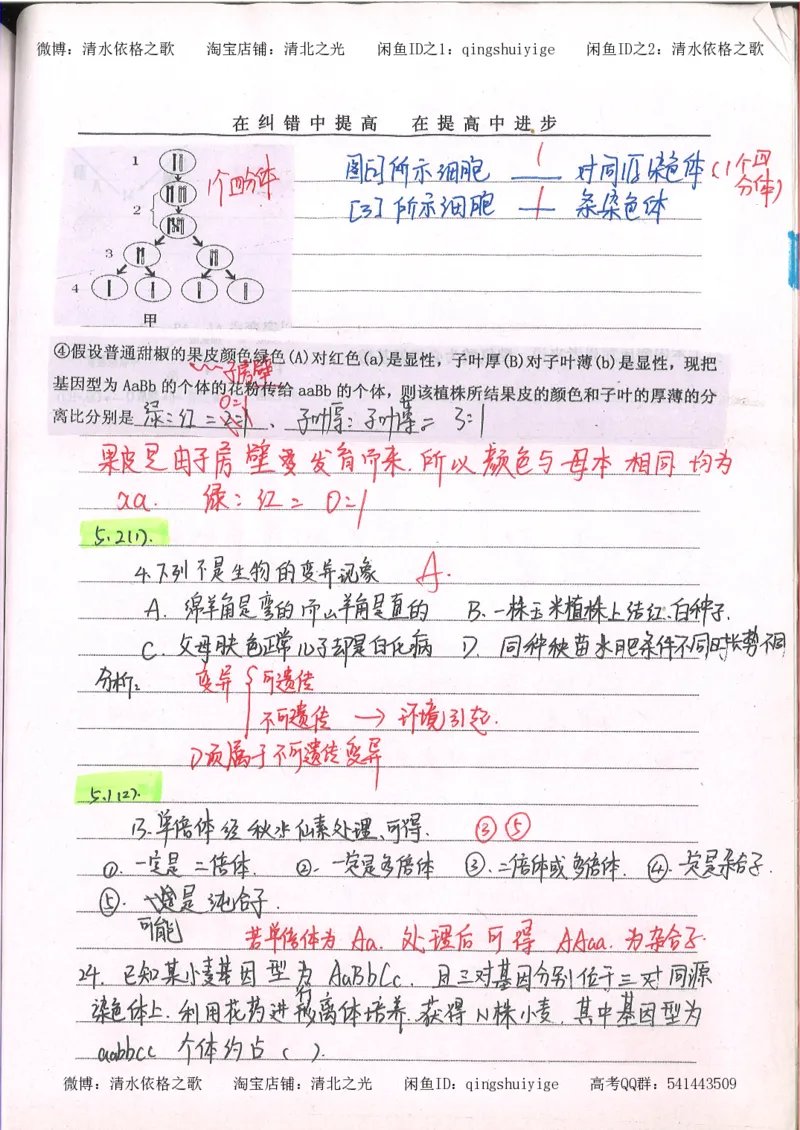 微博：清水依格之歌 淘宝店铺：清北之光 闲鱼ID之1：qingshuiyige 闲鱼ID之2：清水依格之歌
在纠错中提高 在提高中进步
1
2
3
4
甲
1个四分体
图[1]所示细胞 1 对同源染色体(1个四分体)
[3]所示细胞 1 条染色体
④假设普通甜椒的果皮颜色绿色(A)对红色(a)是显性，子叶厚(B)对子叶薄(b)是显性，现把
子房壁
基因型为 AaBb 的个体的花粉传给 aaBb 的个体，则该植株所结果皮的颜色和子叶的厚薄的分
0=1
离比分别是 绿:红=、子叶厚:子叶薄=3:1
果皮是由子房壁发育而来.所以颜色与母本相同 均为
aa. 绿:红=0=1
5.2(1).
4.下列不是生物的变异现象 A.
A. 绵羊角是弯的而山羊角是直的 B.一株玉米植株上结红、白种子.
C. 父母肤色正常儿子却是白化病 D. 同种秧苗水肥条件不同时长势不同
分析: 变异{可遗传
不可遗传→环境引起.
D项属于不可遗传变异
5.1(2).
13.单倍体经秋水仙素处理、可得. ③⑤
①.一定是二倍体. ②.一定是多倍体 ③.二倍体或多倍体. ④.一定是杂合子.
⑤.一定是纯合子.
可能
若单倍体为Aa.处理后可得AAaa.为杂合子.
24. 已知某小麦基因型为AaBbCc.且三对基因分别位于三对同源
染色体上.利用花药进行离体培养.获得N株小麦.其中基因型为
aabbcc 个体约占( ).
微博：清水依格之歌 淘宝店铺：清北之光 闲鱼ID：qingshuiyige 高考QQ群：541443509